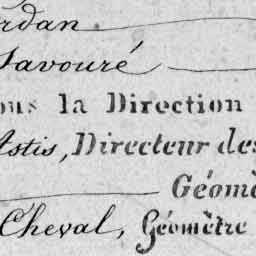 rdan
Savouré
ous la Direction
Astis, Directeur des
Géomè
Cheval, Géomètre